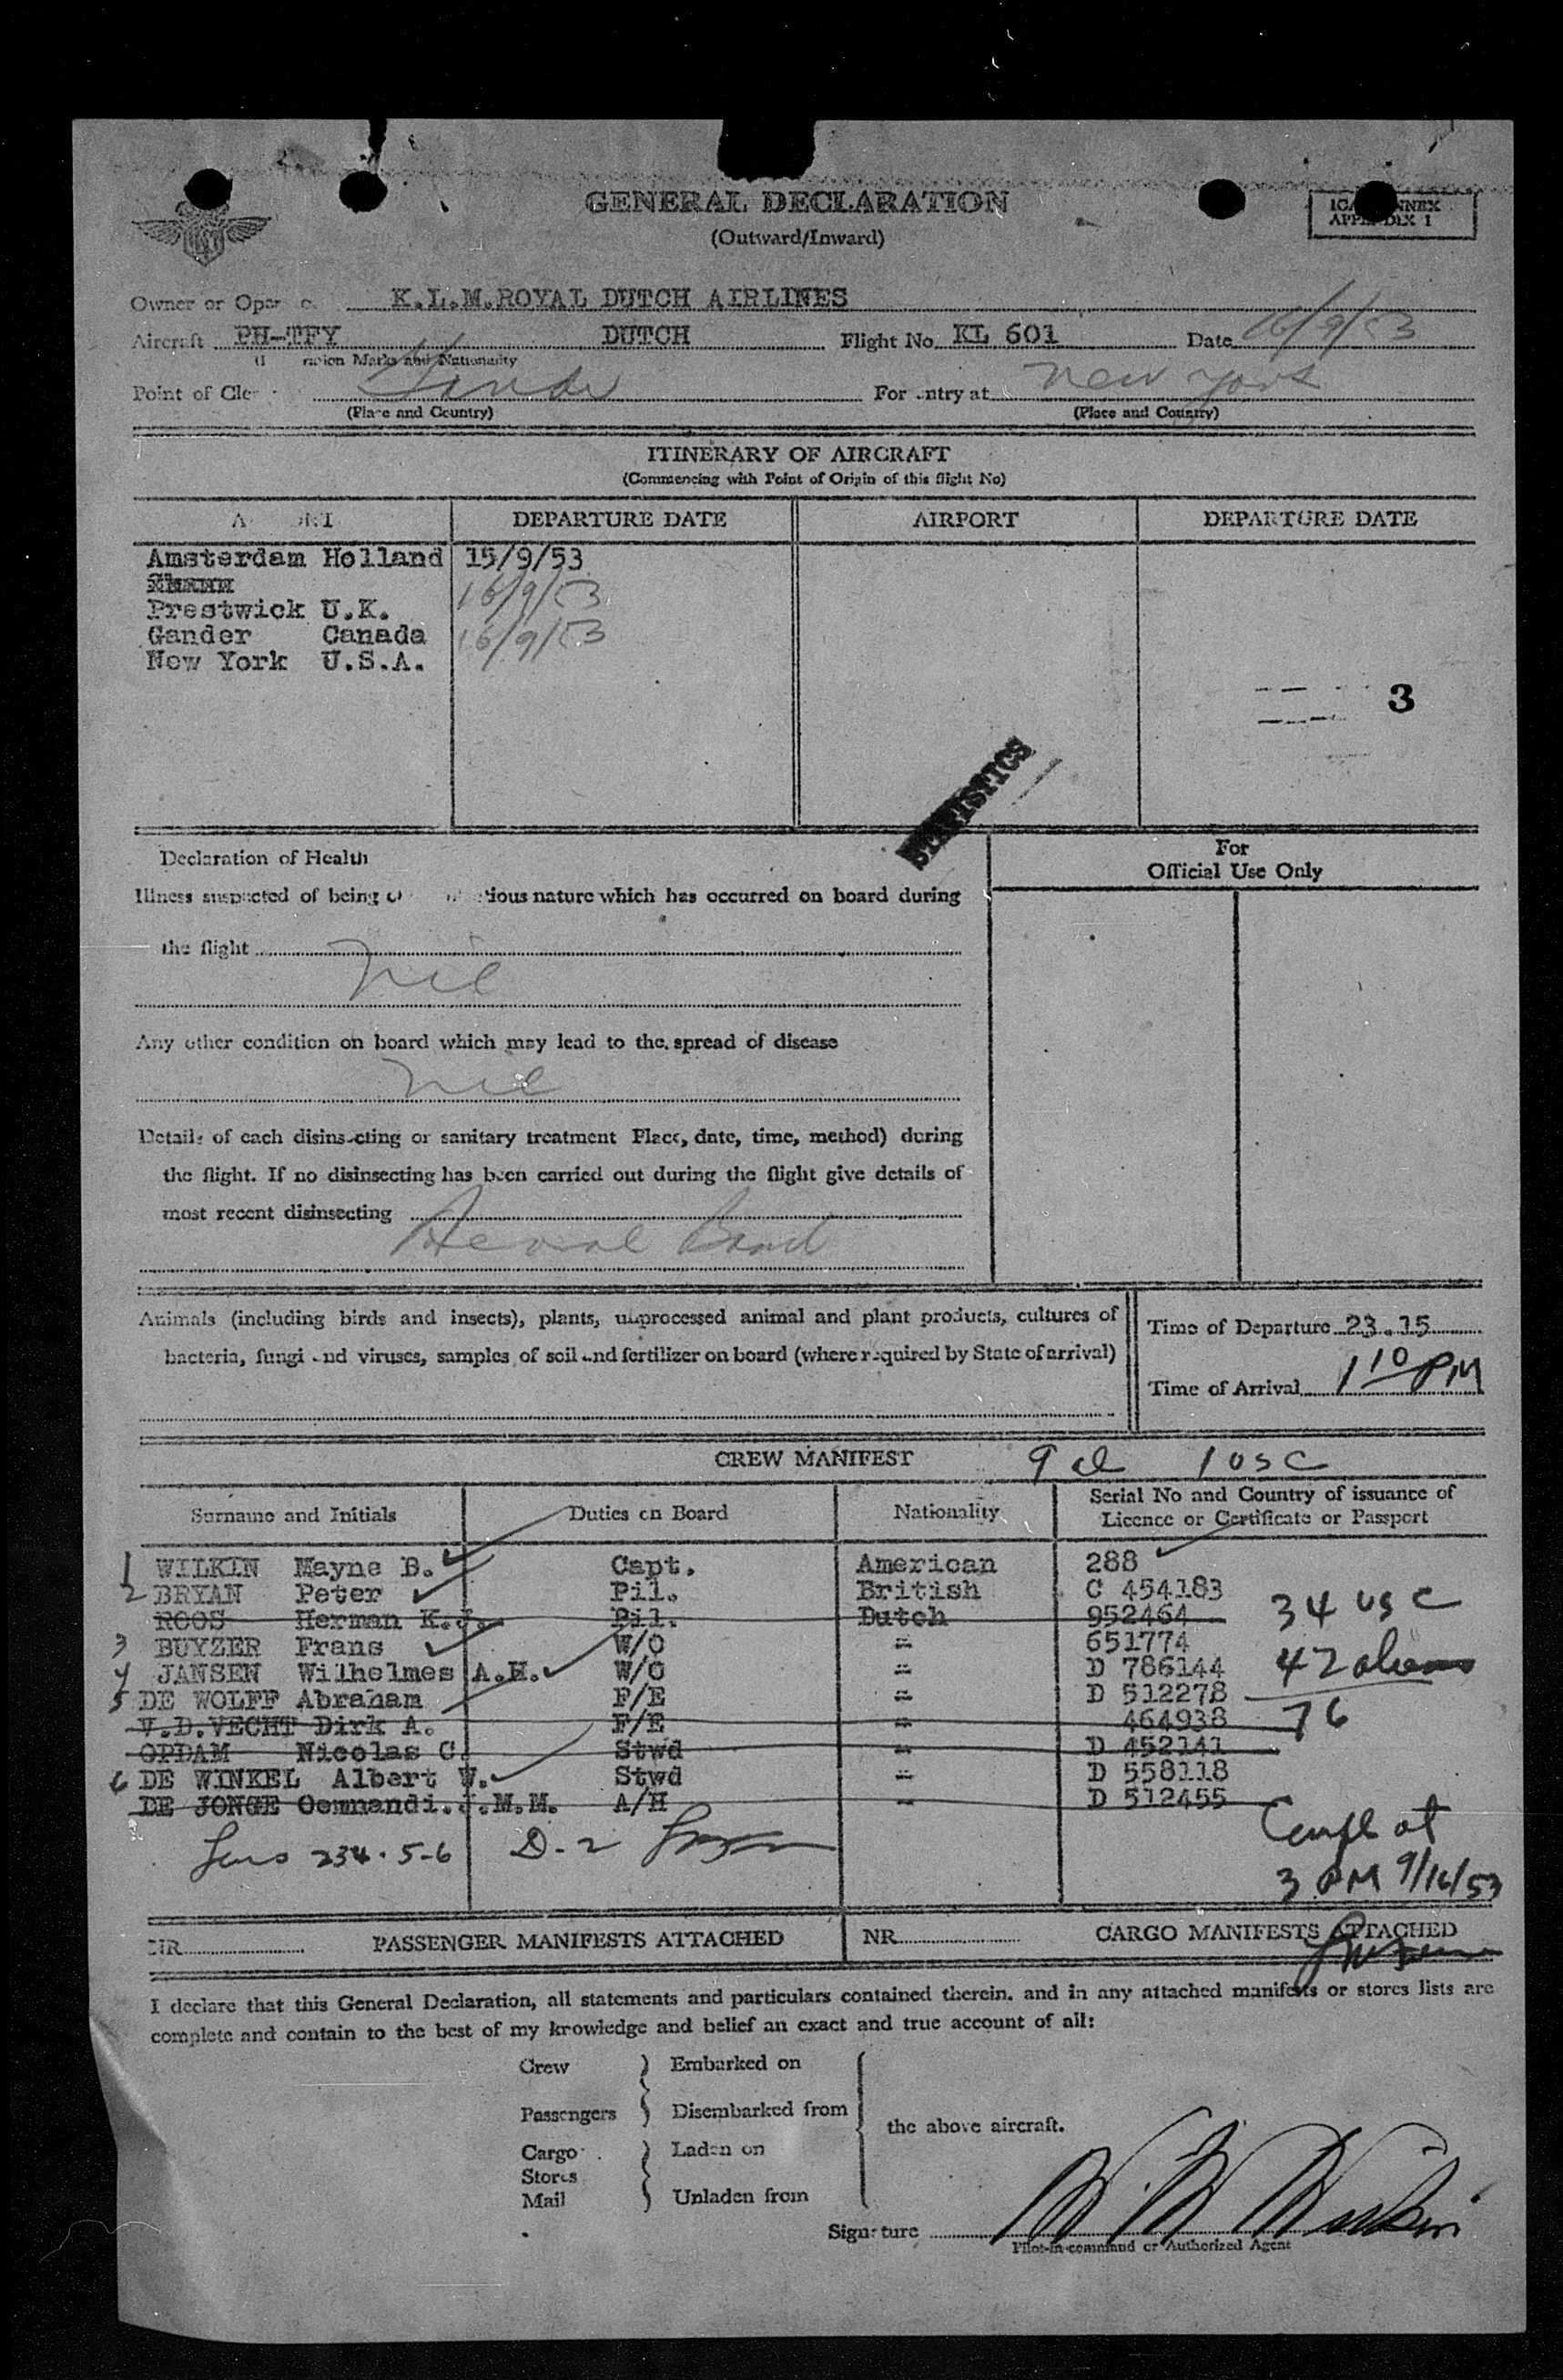 GENERAL DECLARATION
(Outward/Inward)
APPENDIX 1
Owner or Oper K.L.M.ROYAL DUTCH AIRLINES
Aircraft PH-TFY DUTCH Flight No. KL 601 Date 16/9/53
Marks and Nationality
Point of Cle Gander For ntry at New York
(Place and Country) (Place and Country)
ITINERARY OF AIRCRAFT
(Commencing with Point of Origin of this flight No)
DEPARTURE DATE AIRPORT DEPARTURE DATE
Amsterdam Holland 15/9/53
16/9/53
Prestwick U.K.
Gander Canada 16/9/53
New York U.S.A.
3
STATISTICS
Declaration of Health
For
Official Use Only
Illness suspected of being of tious nature which has occurred on board during
the flight
Nil
Any other condition on board which may lead to the spread of disease
Nil
Details of each disinsecting or sanitary treatment Place, date, time, method) during
the flight. If no disinsecting has been carried out during the flight give details of
most recent disinsecting
Animals (including birds and insects), plants, unprocessed animal and plant products, cultures of
bacteria, fungi and viruses, samples of soil and fertilizer on board (where required by State of arrival)
Time of Departure 23.15
Time of Arrival 1 10 PM
CREW MANIFEST 9 al 1 usc
Surname and Initials Duties on Board Nationality Serial No and Country of issuance of
Licence or Certificate or Passport
1 WILKIN Mayne B. Capt. American 288
2 BRYAN Peter Pil. British C 454183
ROOS Herman K.J. Pil. Dutch 952464
34 usc
3 BUYZER Frans W/O " 651774
4 JANSEN Wilhelmes A.H. W/O " D 786144
42 aliens
5 DE WOLFF Abraham F/E " D 512278
V.D.VECHT Dirk A. F/E " 464938
76
OPDAM Nicolas C. Stwd " D 452141
6 DE WINKEL Albert W. Stwd " D 558118
DE JONGE Oemnandi.J.M.M. A/H " D 512455
234.5-6 D-2
Compl at
3 PM 9/16/53
NR PASSENGER MANIFESTS ATTACHED NR CARGO MANIFESTS ATTACHED
I declare that this General Declaration, all statements and particulars contained therein. and in any attached manifests or stores lists are
complete and contain to the best of my krowledge and belief an exact and true account of all:
Crew Embarked on
Passengers Disembarked from
the above aircraft.
Cargo Laden on
Stores
Mail Unladen from
Signature
Pilot-in-command or Authorized Agent